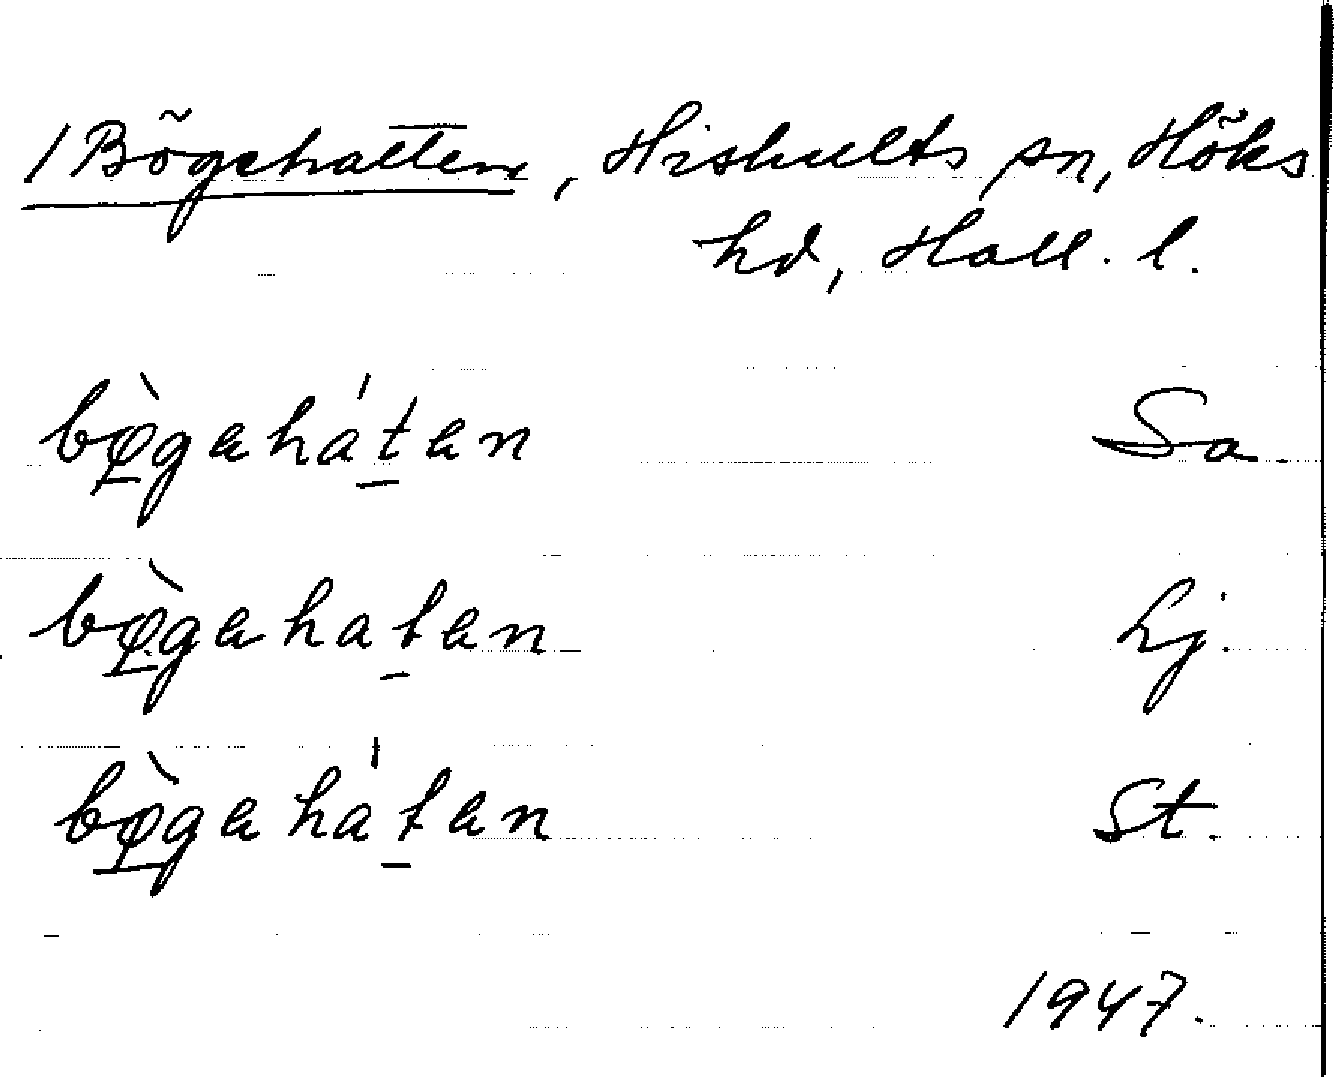 1 Bögehatten, Hishults sn, Höks
hd, Hall. l.
bø̀gahátan Sa
bø̀gahatan Lj.
bø̀gahátan St.
1947.